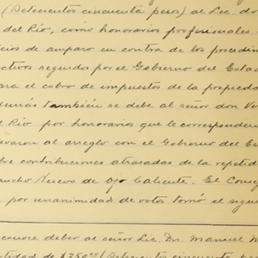 (Doscientos cincuenta pesos) al Lic. do
del Río, como honorarios profesionales
cios de amparo en contra de los procedim
activos seguidos por el Gobierno del Esta
ra el cobro de impuestos de la propiedad
demás también se debe al señor don V
Río por honorarios que le corresponden
varon al arreglo con el Gobierno del E
bre contribuciones atrasadas de la repetid
ancho Nuevo de Ojo Caliente. El Consej
por unanimidad de votos tomó el sigue
conoce deber al señor Lic. Dn. Manuel M
ntidad de $250.00 (Doscientos cincuenta pes